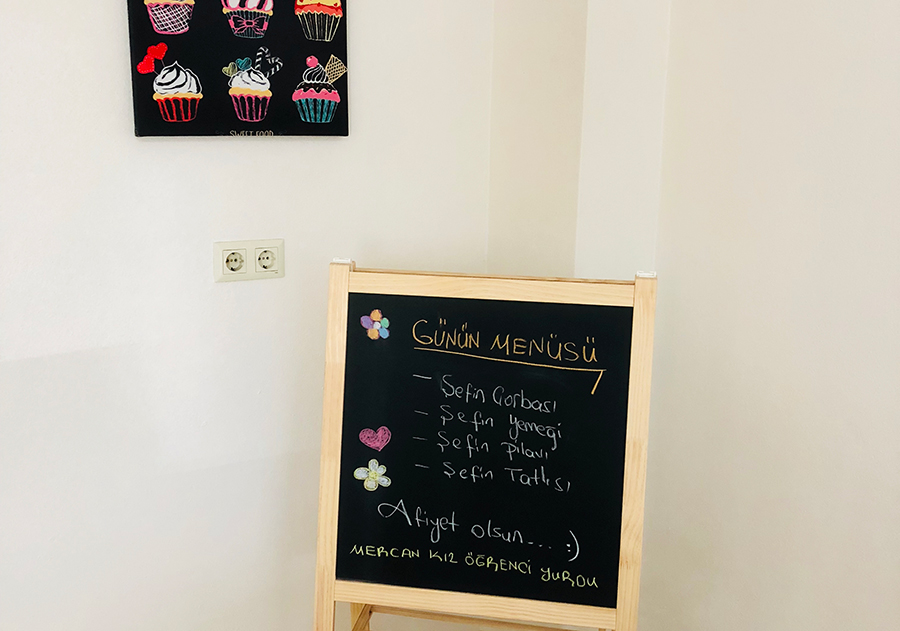 SWEET FOOD
GÜNÜN MENÜSÜ
- Şefin Çorbası
- Şefin yemeği
- Şefin Pilavı
- Şefin Tatlısı
Afiyet olsun... :)
MERCAN KIZ ÖĞRENCİ YURDU